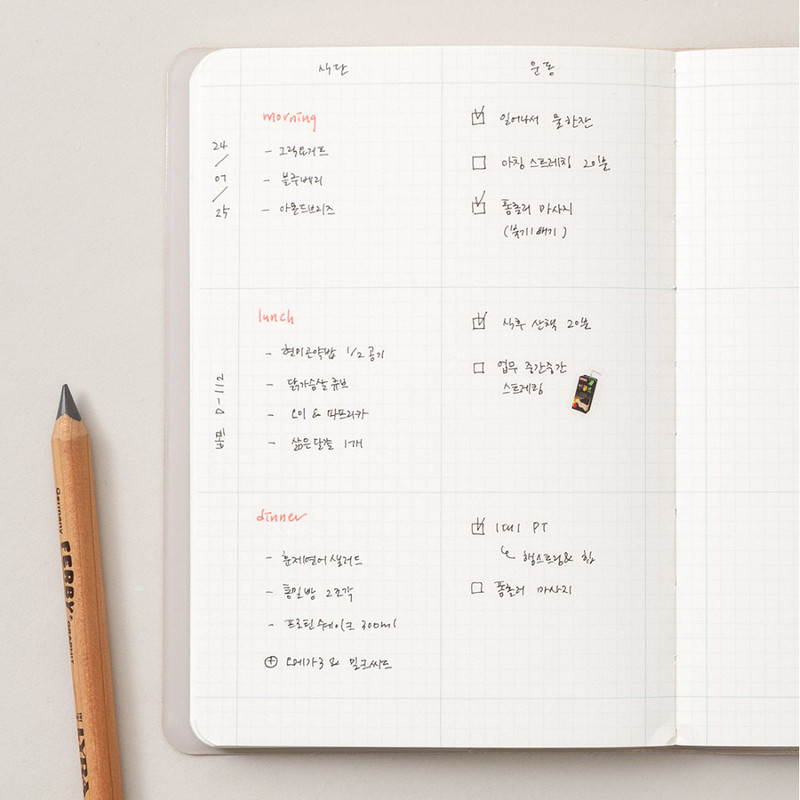 식단
운동
24
/
07
/
25
morning
- 그릭요거트
- 블루베리
- 아몬드브리즈
☑ 일어나서 물 한잔
☐ 아침 스트레칭 20분
☑ 폼롤러 마사지
lunch
- 현미곤약밥 1/2 공기
- 닭가슴살 큐브
- 오이 & 파프리카
- 삶은달걀 1개
☑ 식후 산책 20분
☐ 업무 중간중간
스트레칭
바프 D-112
dinner
- 훈제연어 샐러드
- 통밀빵 2조각
- 프로틴 쉐이크 300ml
⊕ 오메가3 & 밀크씨슬
☑ 1대1 PT
↳ 햄스트링 & 힙
☐ 폼롤러 마사지
Germany
FERBY
LYRA